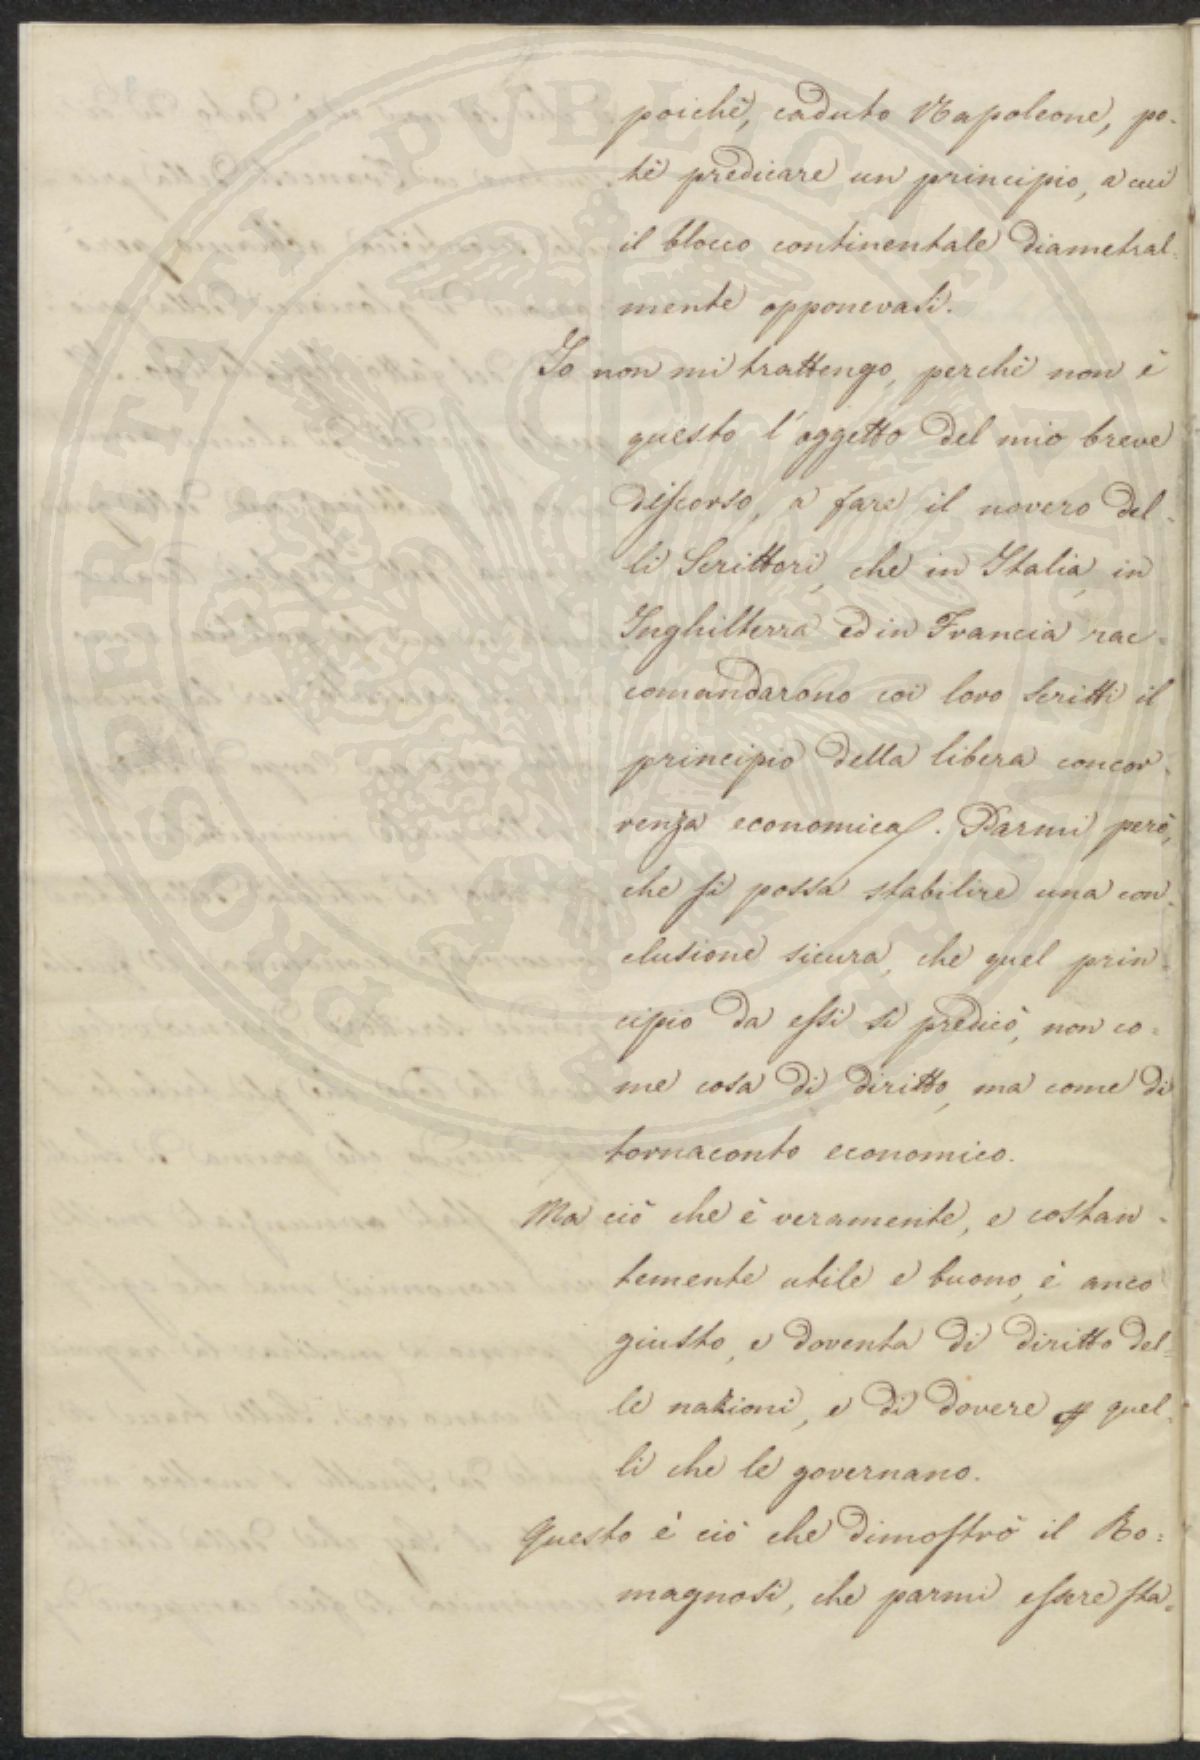 poichè, caduto Napoleone, po-
tè predicare un principio, a cui
il blocco continentale diametral-
mente opponevasi.
Io non mi trattengo, perchè non è
questo l'oggetto del mio breve
discorso, a fare il novero del-
li Scrittori, che in Italia, in
Inghilterra ed in Francia rac-
comandarono coi loro scritti il
principio della libera concor-
renza economica. Parmi però,
che si possa stabilire una con-
clusione sicura, che quel prin-
cipio da essi si predicò, non co-
me cosa di diritto, ma come di
tornaconto economico.
Ma ciò che è veramente, e costan-
temente utile e buono, è anco
giusto, e doventa di diritto del-
le nazioni, e di dovere p quel-
li che le governano.
Questo è ciò che dimostrò il Ro-
magnosi, che parmi essere sta-
PROSPERITATI PVBLICAE AVGENDAE